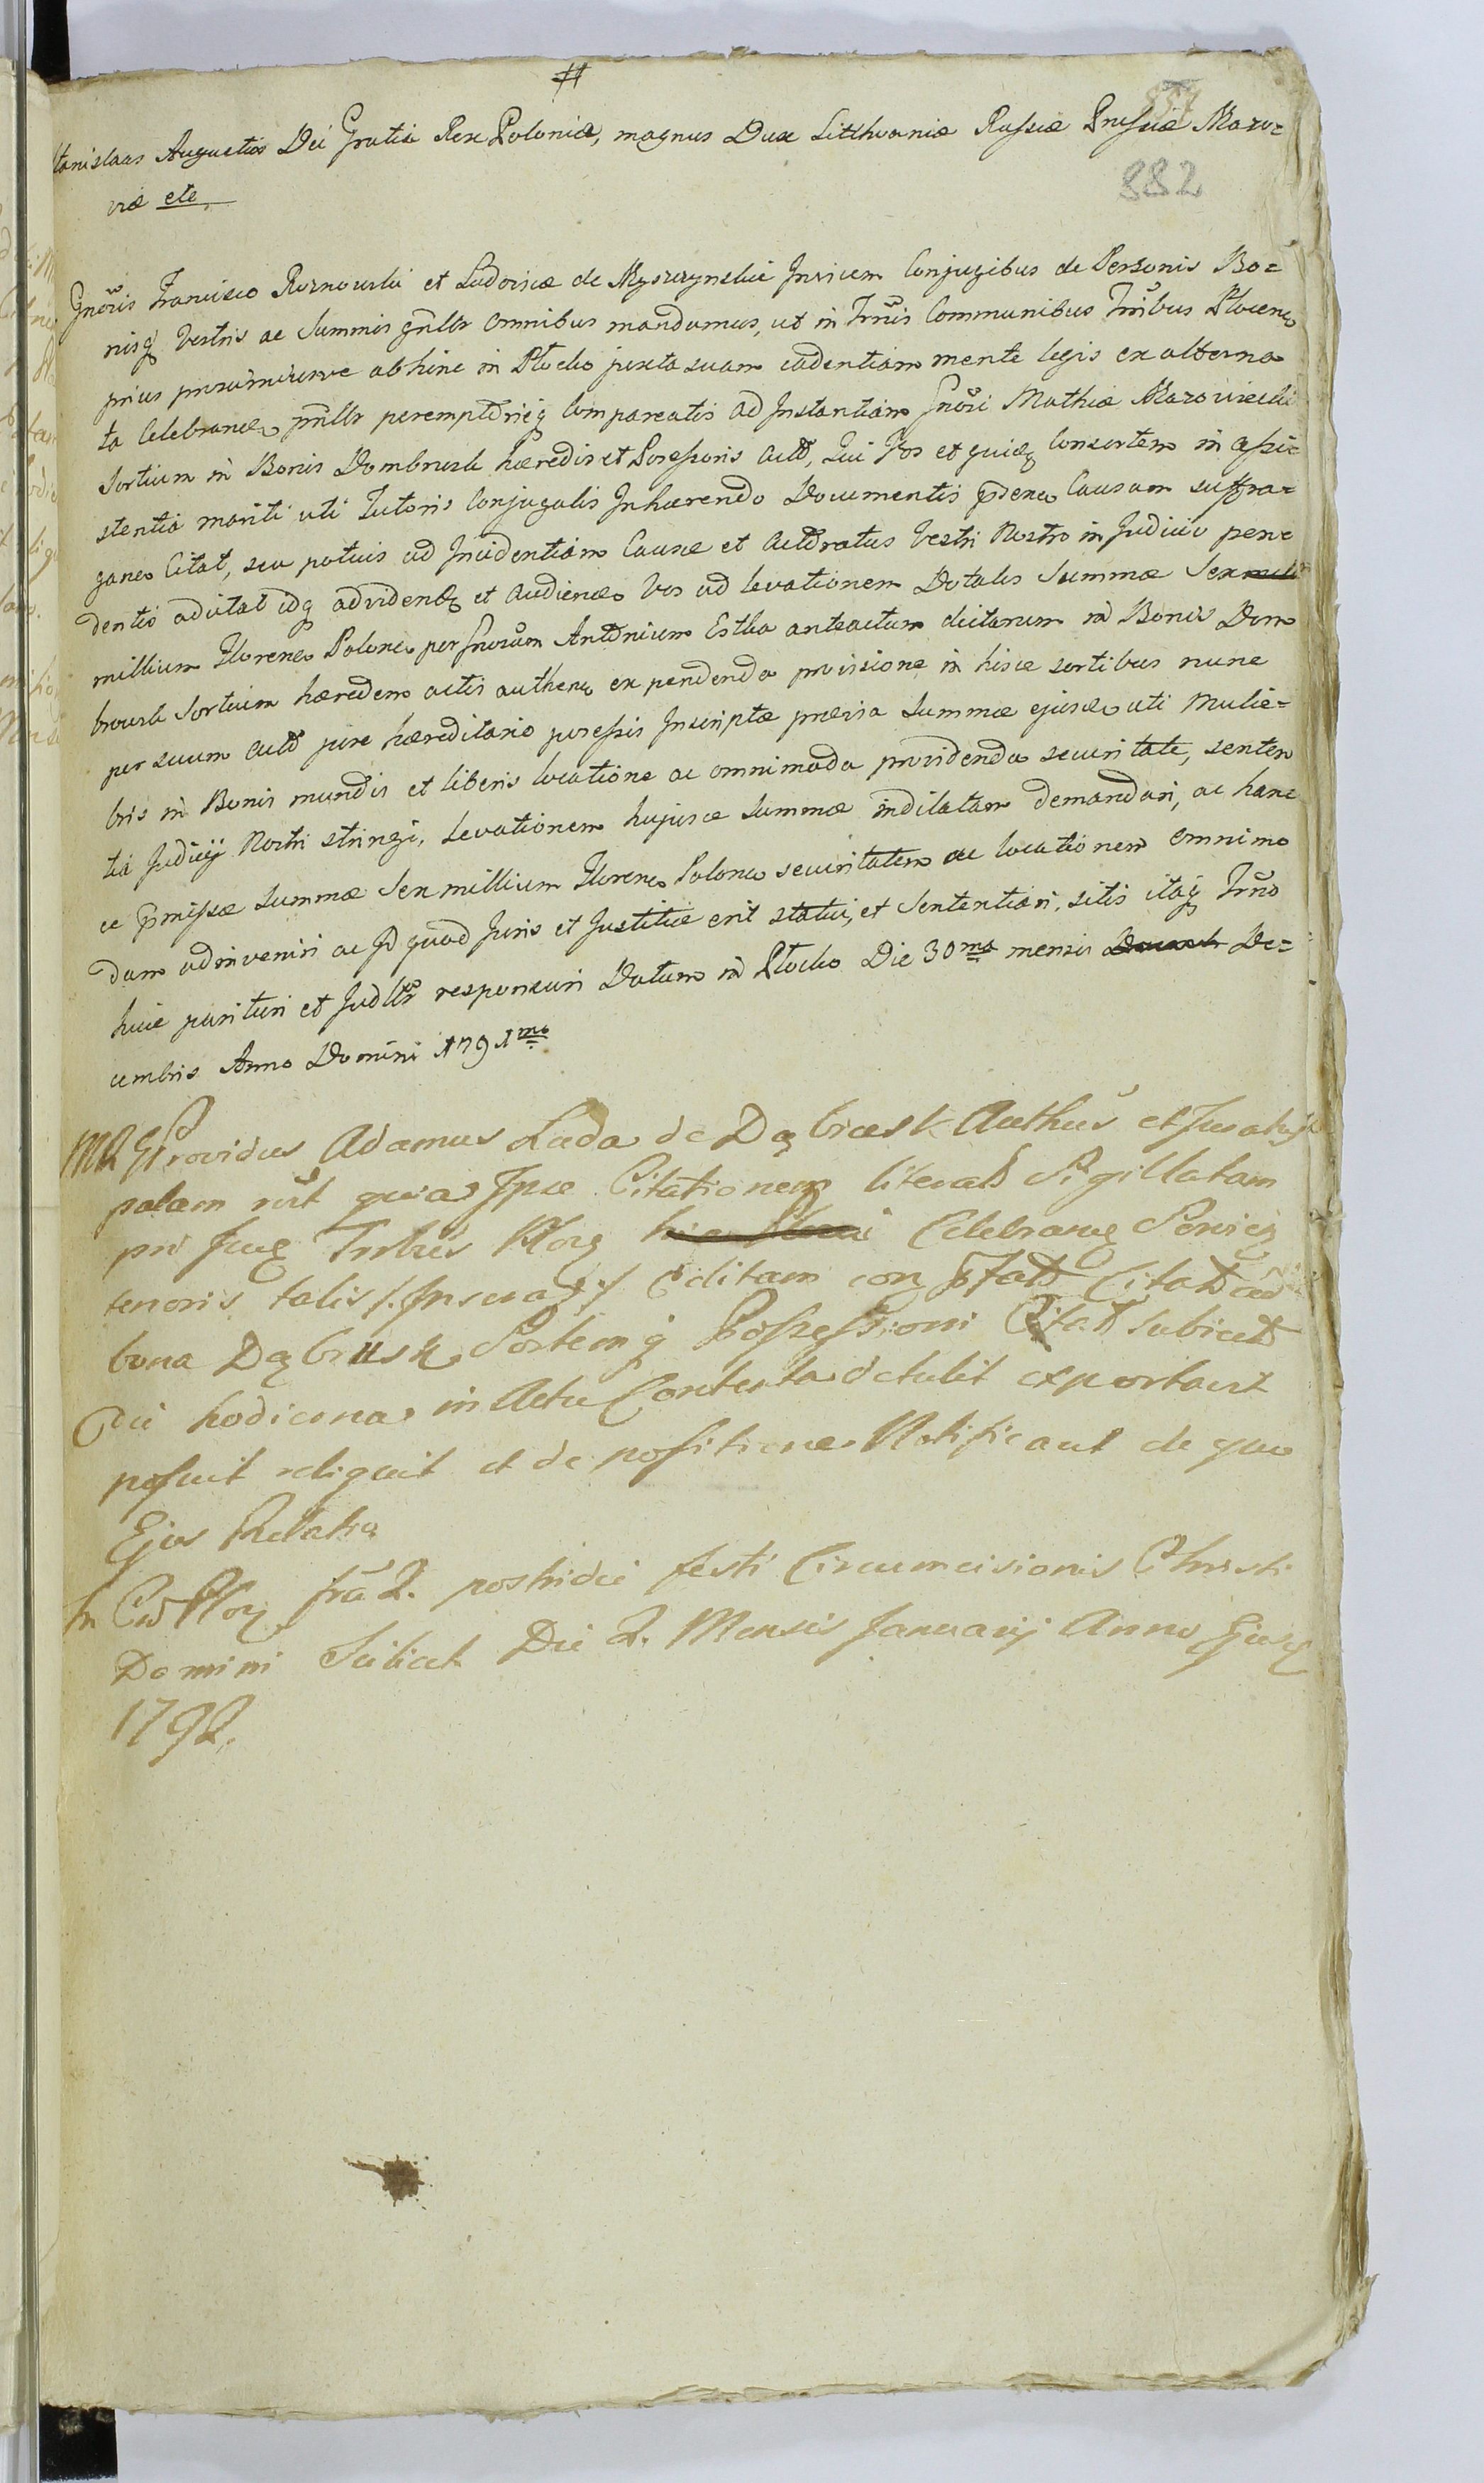 #
857
Stanislaus Augustus Dei Gratia Rex Poloniæ, magnus Dux Litthvaniæ Russiæ Prussiæ Mazo=
viæ etc
882
Gnõsis Francisco Roznowski et Ludovicæ de Myszczynskie Invicem Conjugibus de Personis Bo=
nisq Vestris ac Summis gnlltr omnibus mandamus, ut in Trnis Communibus Trribus Plocen
prius proximiusve abhinc in Plocko juxta suam cadentiam mente legis ex alterna
ta Celebrand pnllr peremptorieq Compareatis ad Instantiam Gnõsi Mathiæ Mazowiecki
Sortium in Bonis Dombrusk hæredis et Possessoris Actd, Qui Vos et quidem Consortem in assi=
stentia mariti uti Tutoris Conjugalis Inhærendo Documentis pden Causam suffra=
gane Citat, seu potius ad Incidentiam Causæ et Actoratus Vestri Nostro in Judicio pen=
dentis adcitat idq ad videnđ et Audienđ Vos ad levationem Dotalis Summæ Sex
millium Floren Polon per Gnosum Antonium Estka anteactum dictarum in Bonis Dom
brousk Sortium hæredem actis authen expendenda provisione in hisce sortibus nunc
per suum Actd jure hæreditario possessis Inscriptæ prævia Summæ ejusd uti Mulie=
bris in Bonis mundis et liberis locatione ac omnimoda providenda securitate, senten
tia Judicij Nostri stringi, Levationem hujusce Summæ indilatam demandari, ac hanc
ce pmissæ Summæ Sex millium Floren Polon securitatem ac locationem omnimo
dam adinveniri ac Id quod Juris et Justitiæ erit statui, et Sententiari, sitis itaq Trno
huic parituri et Judltr responsuri Datum in Plocko Die 30ma mensis De=
cembris Anno Domini 1791mo
Providus Adamus Lada de Dąbrusk Authus et Jurat
palam rcit quia Ipse Citationem literat Sigillatam
pro Trribus Ploc Celebrand
tenoris talis /:Inserat:/ Editam con Citatd ad
bona Dąbrusk Sortemq Possessioni Citat subiect
Die hodierna in Actu Contenta detulit exportavit
posuit reliquit et de positione Notificavit de quo
Ejus Relatio
In Ploc fra 2. postridie festi Circumcisionis Christi
Domini Scilicet Die 2. Mensis Januarij Anno Ejusd
1792.